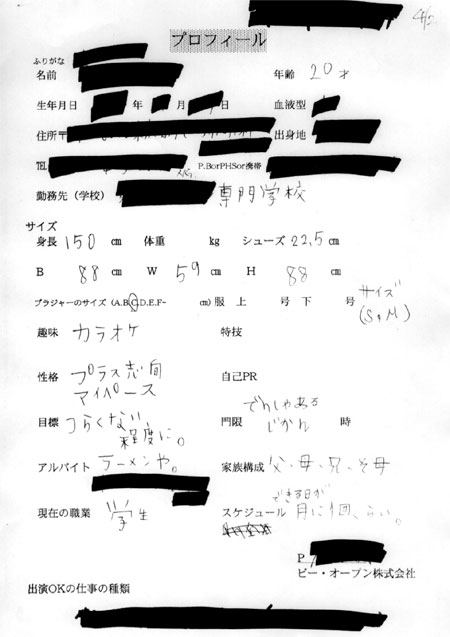 プロフィール
ふりがな
名前
年齢 20才
生年月日 年 月 日 血液型
住所〒 出身地
℡ P.BorPHSor携帯
勤務先（学校） 専門学校
サイズ
身長 150 cm 体重 kg シューズ 22,5 cm
B 88 cm W 59 cm H 88 cm
ブラジャーのサイズ (A.B.C.D.E.F~ cm) 服 上 号 下 号 サイズ
(S・M)
趣味 カラオケ 特技
性格 プラス志向
マイペース
自己PR
目標 つらくない
程度に。
門限 でんしゃある
じかん 時
アルバイト ラーメンや。 家族構成 父・母・兄・そ母
現在の職業 学生 スケジュール できる日が
月に1回、らい。
P
ピー・オープン株式会社
出演OKの仕事の種類